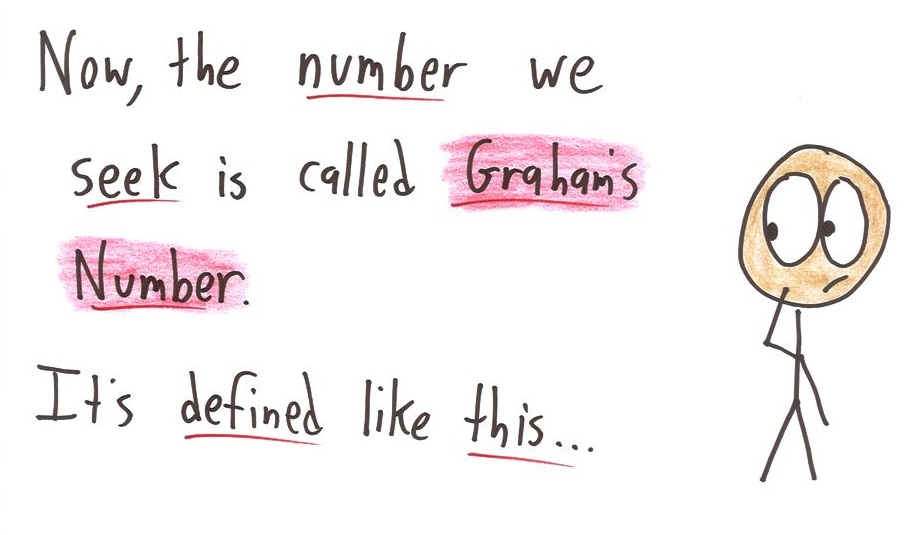 Now, the number we
seek is called Graham's
Number.
It's defined like this...